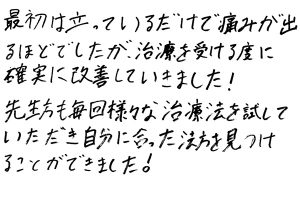 最初は立っているだけで痛みが出
るほどでしたが、治療を受ける度に
確実に改善していきました！
先生方も毎回様々な治療法を試して
いただき自分に合った法方を見つけ
ることができました！